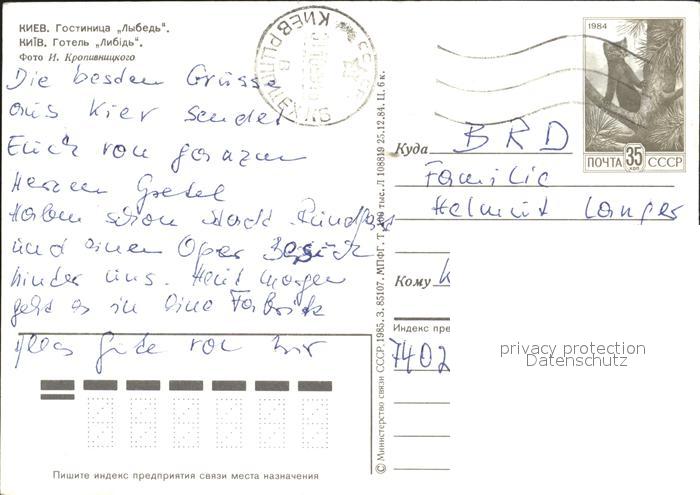 КИЕВ. Гостиница „Лыбедь“.
КИЇВ. Готель „Либідь“.
Фото И. Кропивницкого
Die besden Grüsse
aus Kiev sendet
Euch von ganzem
Herzen Gretel
Haben schon Stadt Rundfart
und einen Oper Besuch
hinder uns. Heut morgen
geht es in eine Fabrik
Alles Gute von mir
Пишите индекс предприятия связи места назначения
© Министерство связи СССР. 1985. З. 85107. МПФГ. Т. тыс. Л 108819 25.12.84. Ц. 6 к.
КИЕВ
1984
ПОЧТА 35 КОП СССР
Куда BRD
Familie
Helmut Langer
Кому K
Индекс пре
7402
privacy protection
Datenschutz